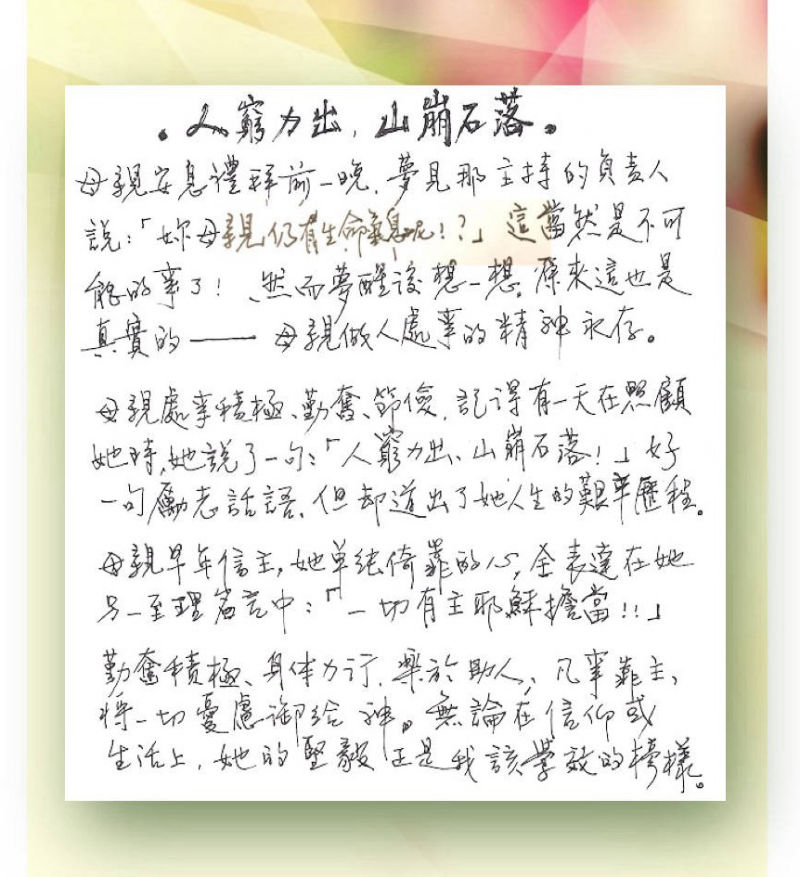 。人窮力出，山崩石落。
母親安息禮拜前一晚，夢見那主持的負責人
說：「妳母親仍有生命氣息呢！？」這當然是不可
能的事了！然而夢醒後想一想，原來這也是
真實的——母親做人處事的精神永存。
母親處事積極、勤奮、節儉，記得有一天在照顧
她時，她說了一句：「人窮力出、山崩石落！」好
一句勵志話語，但却道出了她人生的艱辛歷程。
母親早年信主，她单純倚靠的心，全表達在她
另一至理名言中：「一切有主耶穌擔當！！」
勤奮積極、身体力行、樂於助人，凡事靠主、
将一切憂慮卸給神。無論在信仰或
生活上，她的堅毅正是我該學效的榜樣。